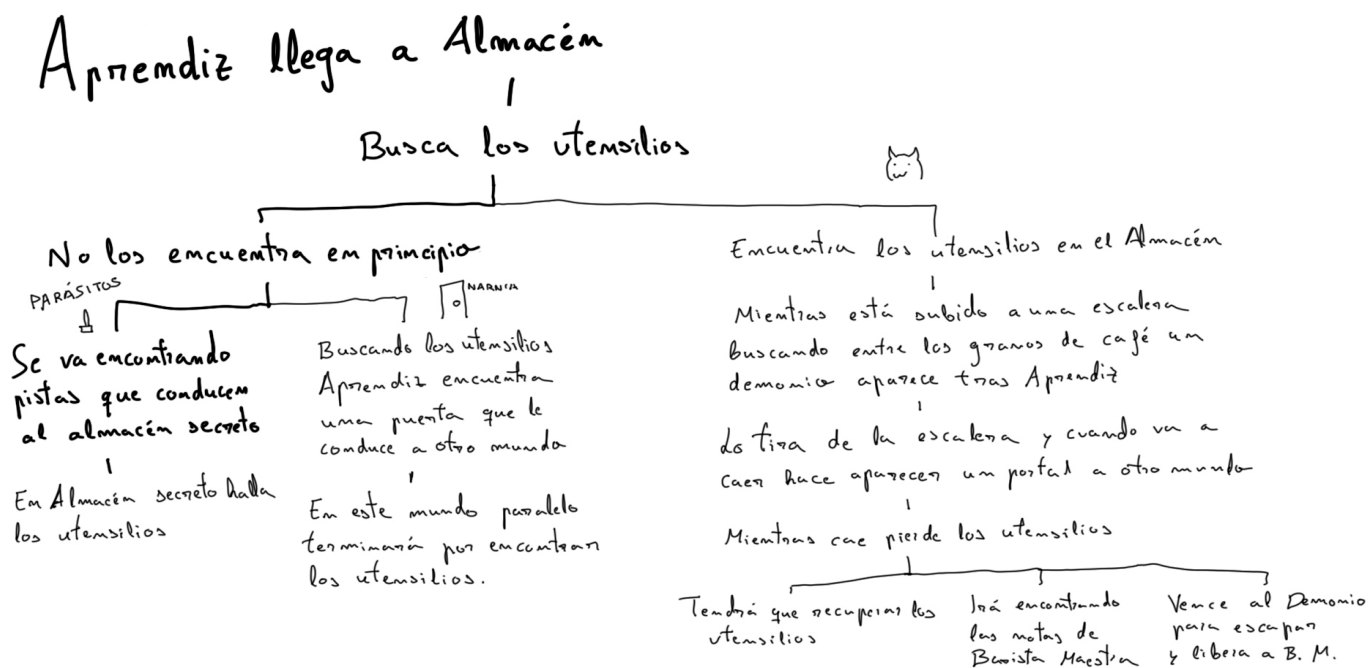 Aprendiz llega a Almacén
Busca los utensilios
No los encuentra en principio
PARÁSITOS
Se va encontrando
pistas que conducen
al almacén secreto
En Almacén secreto halla
los utensilios
NARNIA
Buscando los utensilios
Aprendiz encuentra
una puerta que le
conduce a otro mundo
En este mundo paralelo
terminará por encontrar
los utensilios.
Encuentra los utensilios en el Almacén
Mientras está subido a una escalera
buscando entre los granos de café un
demonio aparece tras Aprendiz
Lo tira de la escalera y cuando va a
caer hace aparecer un portal a otro mundo
Mientras cae pierde los utensilios
Tendrá que recuperar los
utensilios
Irá encontrando
las notas de
Barista Maestra
Vence al Demonio
para escapar
y libera a B. M.